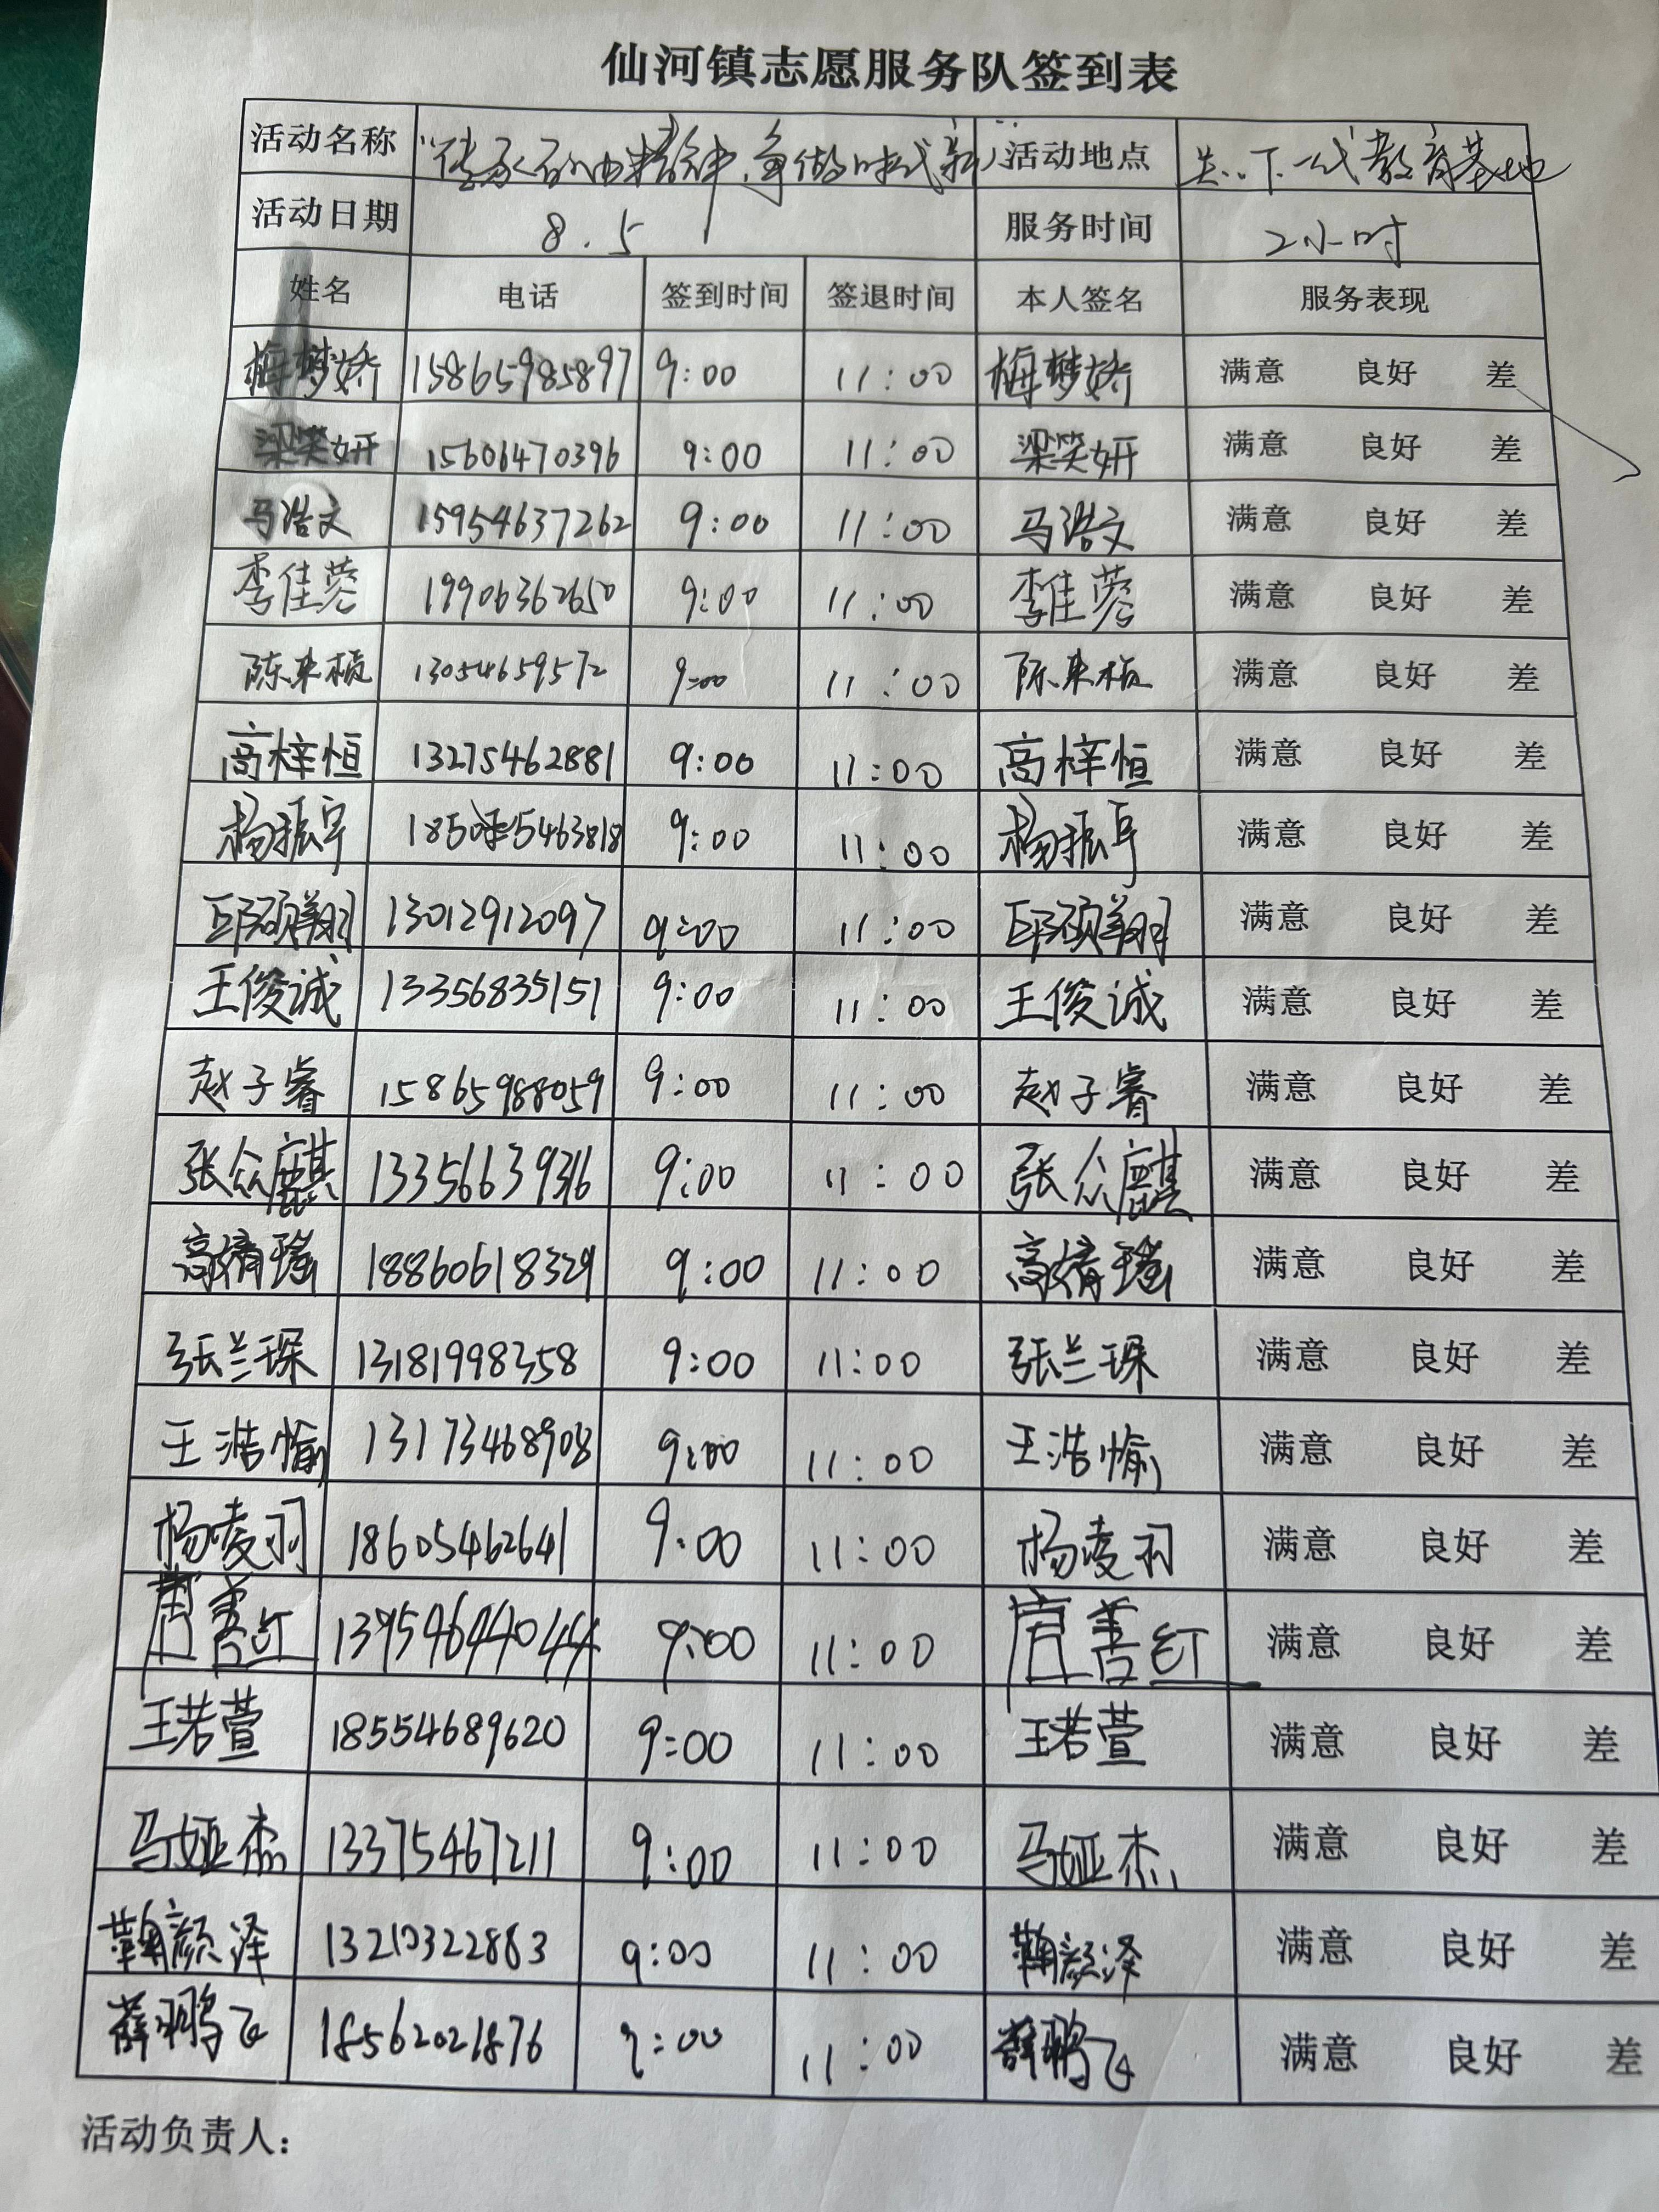 仙河镇志愿服务队签到表
活动名称 "传承石油精神,争做时代新人" 活动地点 关心下一代教育基地
活动日期 8.5 服务时间 2小时
姓名 电话 签到时间 签退时间 本人签名 服务表现
梅梦娇 15865985897 9:00 11:00 梅梦娇 满意 良好 差
梁笑妍 15606470396 9:00 11:00 梁笑妍 满意 良好 差
马浩文 15954637262 9:00 11:00 马浩文 满意 良好 差
李佳蓉 19906362650 9:00 11:00 李佳蓉 满意 良好 差
陈来桢 13054659572 9:00 11:00 陈来桢 满意 良好 差
高梓恒 13275462881 9:00 11:00 高梓恒 满意 良好 差
杨振宇 9:00 11:00 杨振宇 满意 良好 差
邱硕翔 13012912097 9:00 11:00 邱硕翔 满意 良好 差
王俊诚 13356835151 9:00 11:00 王俊诚 满意 良好 差
赵子睿 15865988059 9:00 11:00 赵子睿 满意 良好 差
张众麒 13356639316 9:00 11:00 张众麒 满意 良好 差
高婧瑶 18860618329 9:00 11:00 高婧瑶 满意 良好 差
张兰琛 13181998358 9:00 11:00 张兰琛 满意 良好 差
王浩愉 13173468908 9:00 11:00 王浩愉 满意 良好 差
杨凌羽 18605462641 9:00 11:00 杨凌羽 满意 良好 差
善红 13954644044 9:00 11:00 善红 满意 良好 差
王若萱 18554689620 9:00 11:00 王若萱 满意 良好 差
马娅杰 13375467211 9:00 11:00 马娅杰 满意 良好 差
鞠颜泽 13210322883 9:00 11:00 鞠颜泽 满意 良好 差
薛鹏飞 18562021876 9:00 11:00 薛鹏飞 满意 良好 差
活动负责人: